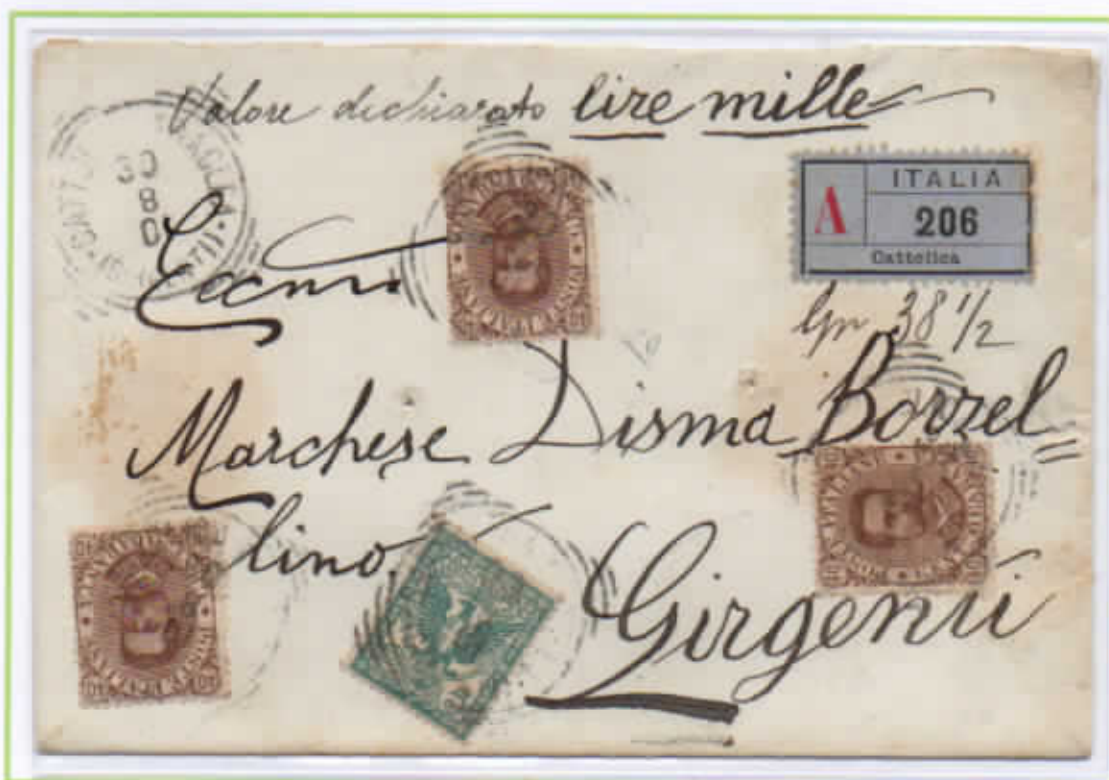 Valore dichiarato lire mille
A ITALIA
206
Cattolica
30
8
0
Gr 38 1/2
Marchese Disma Borzel=
lino,
Girgenti